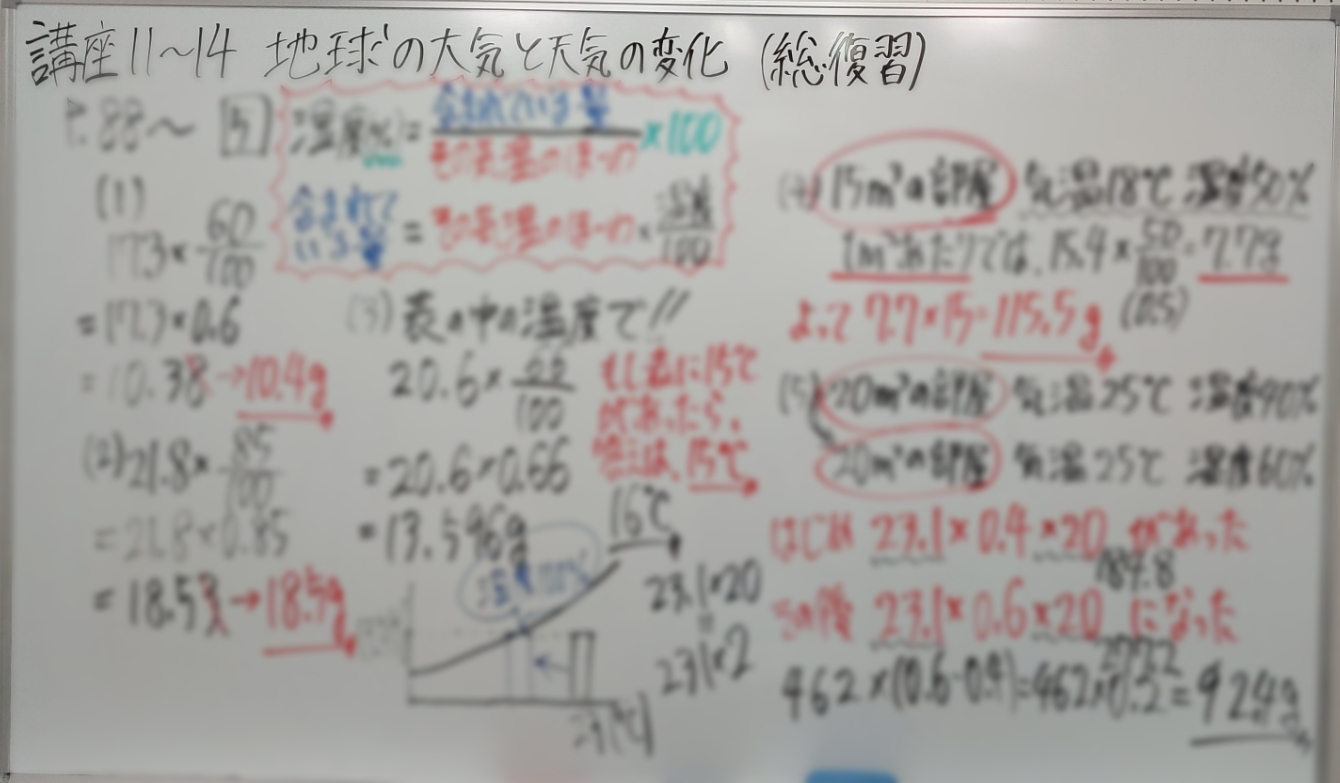 講座11～14 地球の大気と天気の変化 (総復習)
P.88～
湿度(%)= 含まれている量 ×100
(1)
17.3× 60/100
= 17.3×0.6
= 10.38→10.4g
(2) 21.8× 85/100
= 21.8×0.85
= 18.53→18.5g
(3) 表の中の温度で!!
20.6×
= 20.6×0.66
= 13.596g
16℃
もし表に15℃
があったら、
答えは、15℃
23.1×20
231×2
(4) 15m³の部屋 気温18℃ 湿度50%
1m³あたりでは、15.4× 50/100 = 7.7g
(0.5)
よって 7.7×15=115.5g
(5) 20m³の部屋 気温25℃ 湿度40%
20m³の部屋 気温25℃ 湿度60%
はじめ 23.1×0.4×20 があった
184.8
その後 23.1×0.6×20 になった
277.2
462×(0.6-0.4)=462×0.2=92.4g